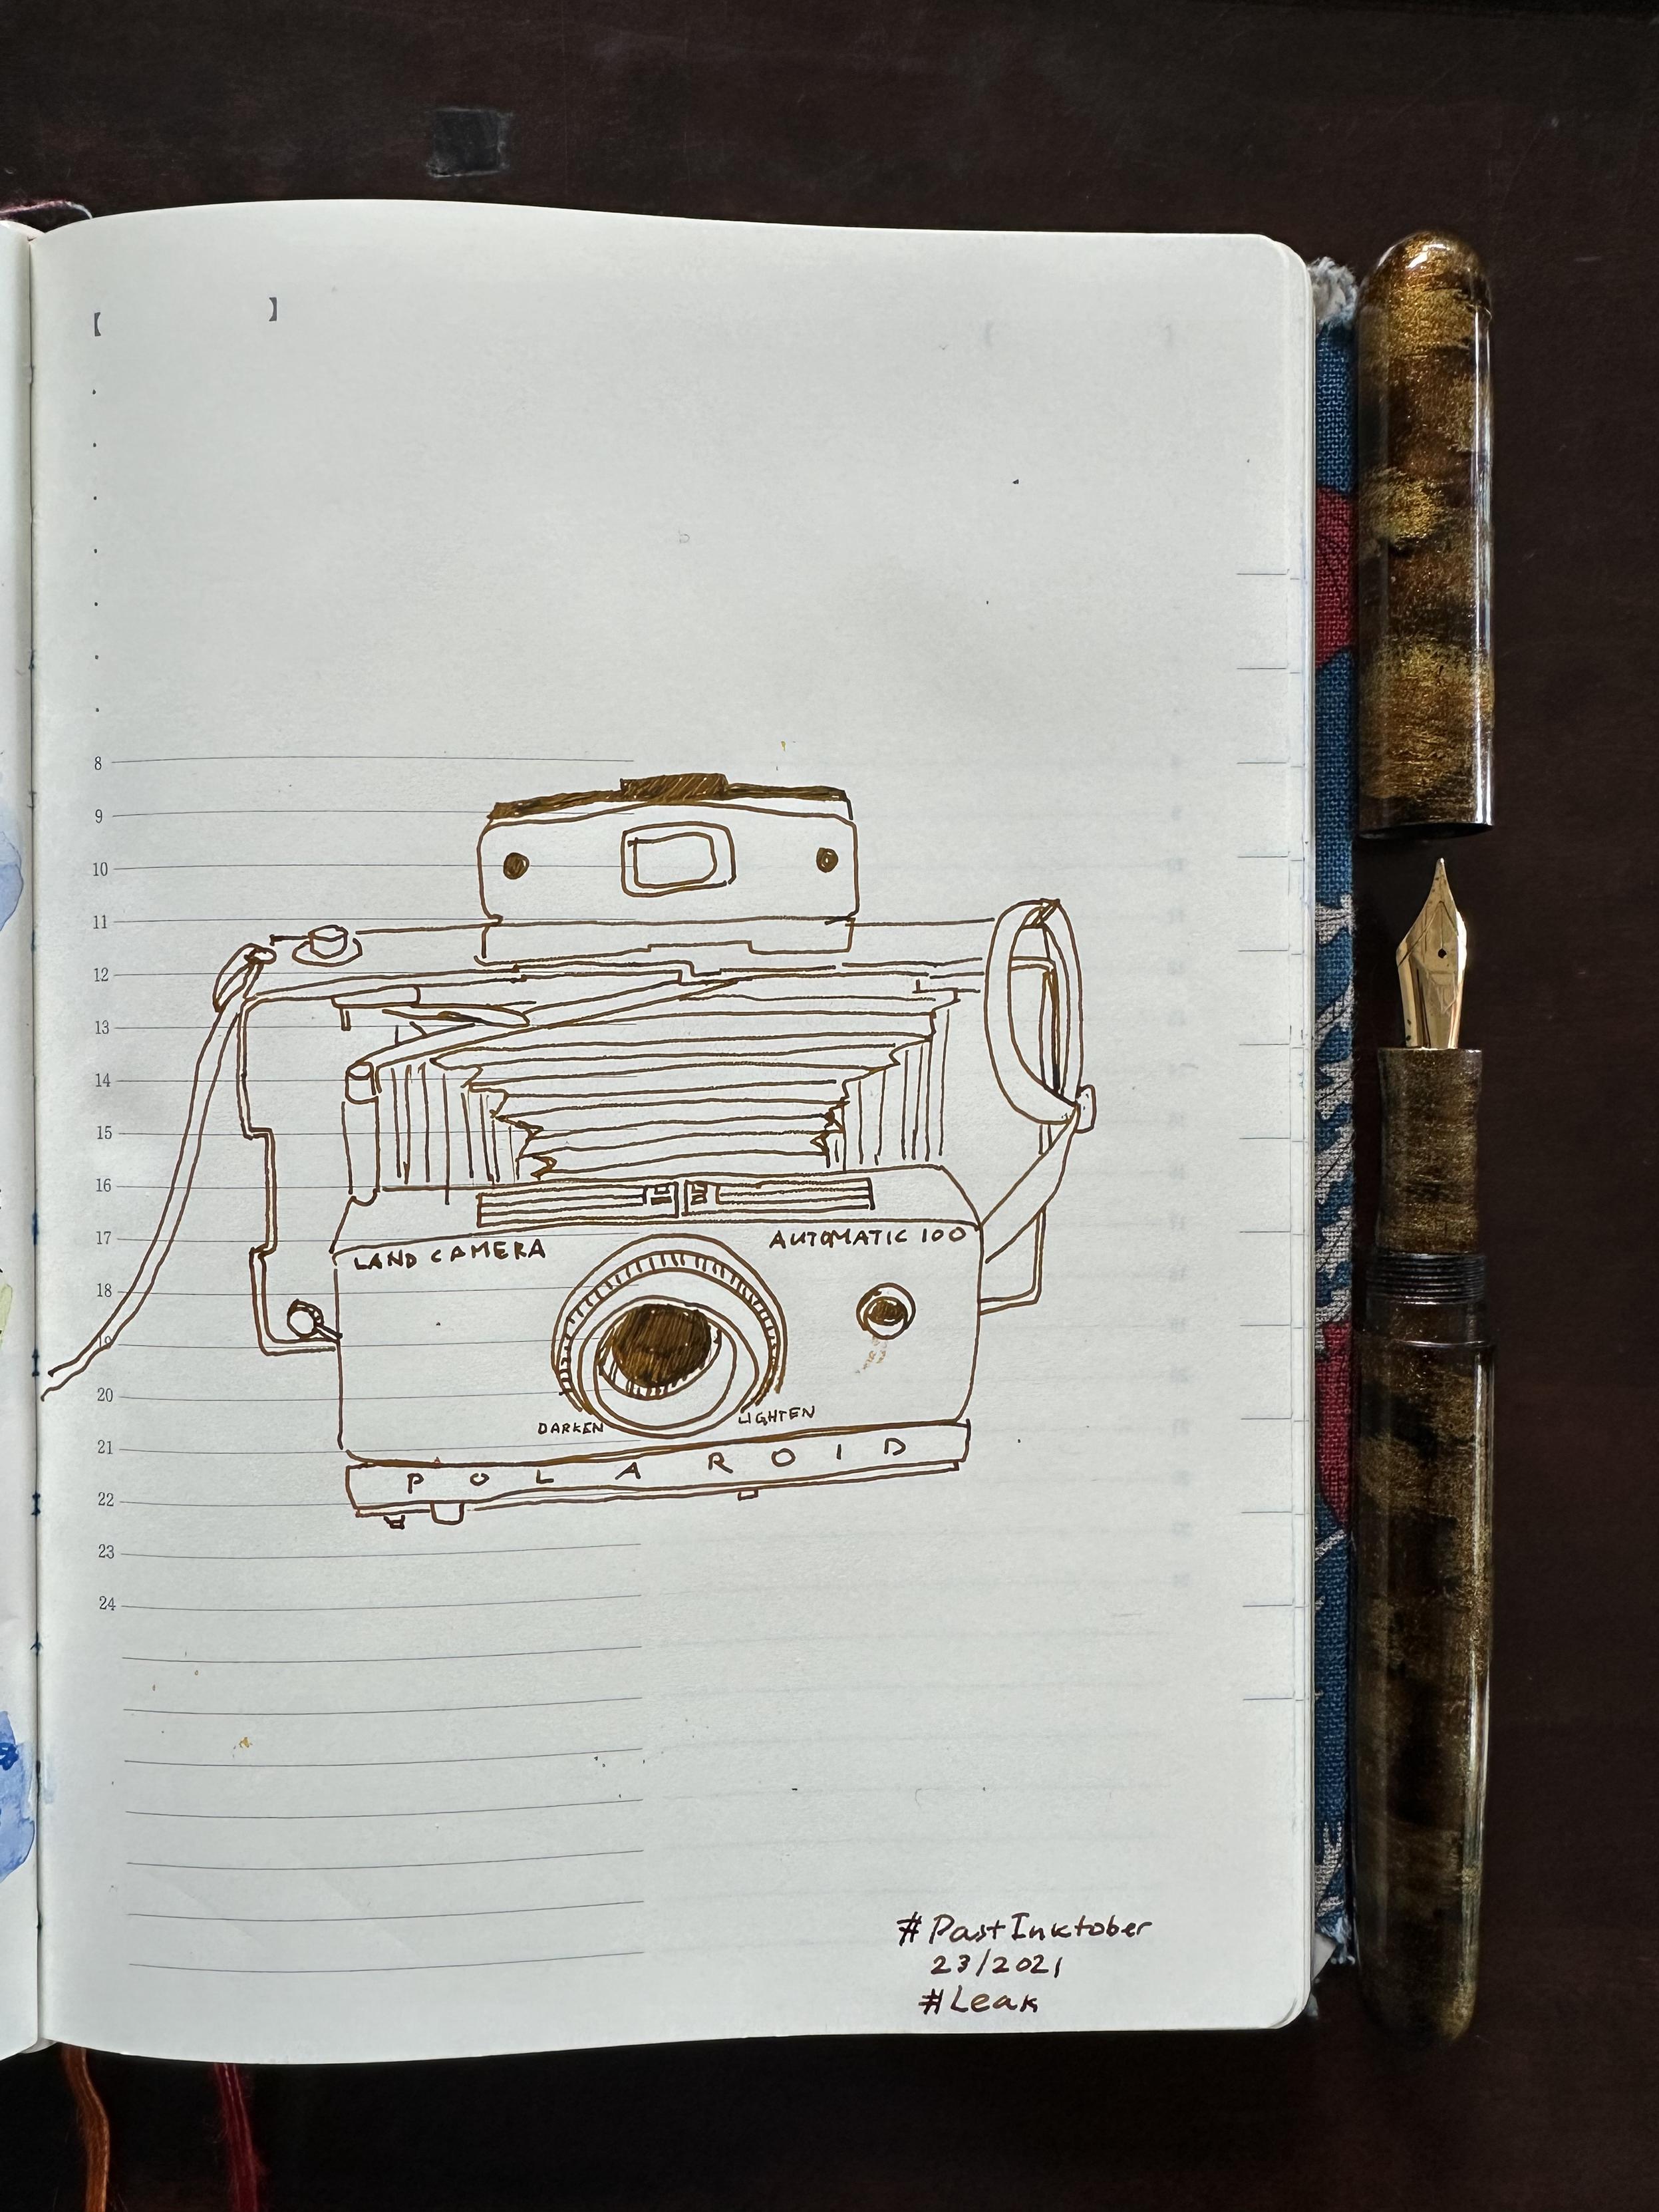 【 】
8
9
10
11
12
13
14
15
16
17
LAND CAMERA AUTOMATIC 100
18
19
DARKEN LIGHTEN
20
21
POLAROID
22
23
24
#PastInktober
23/2021
#Leak